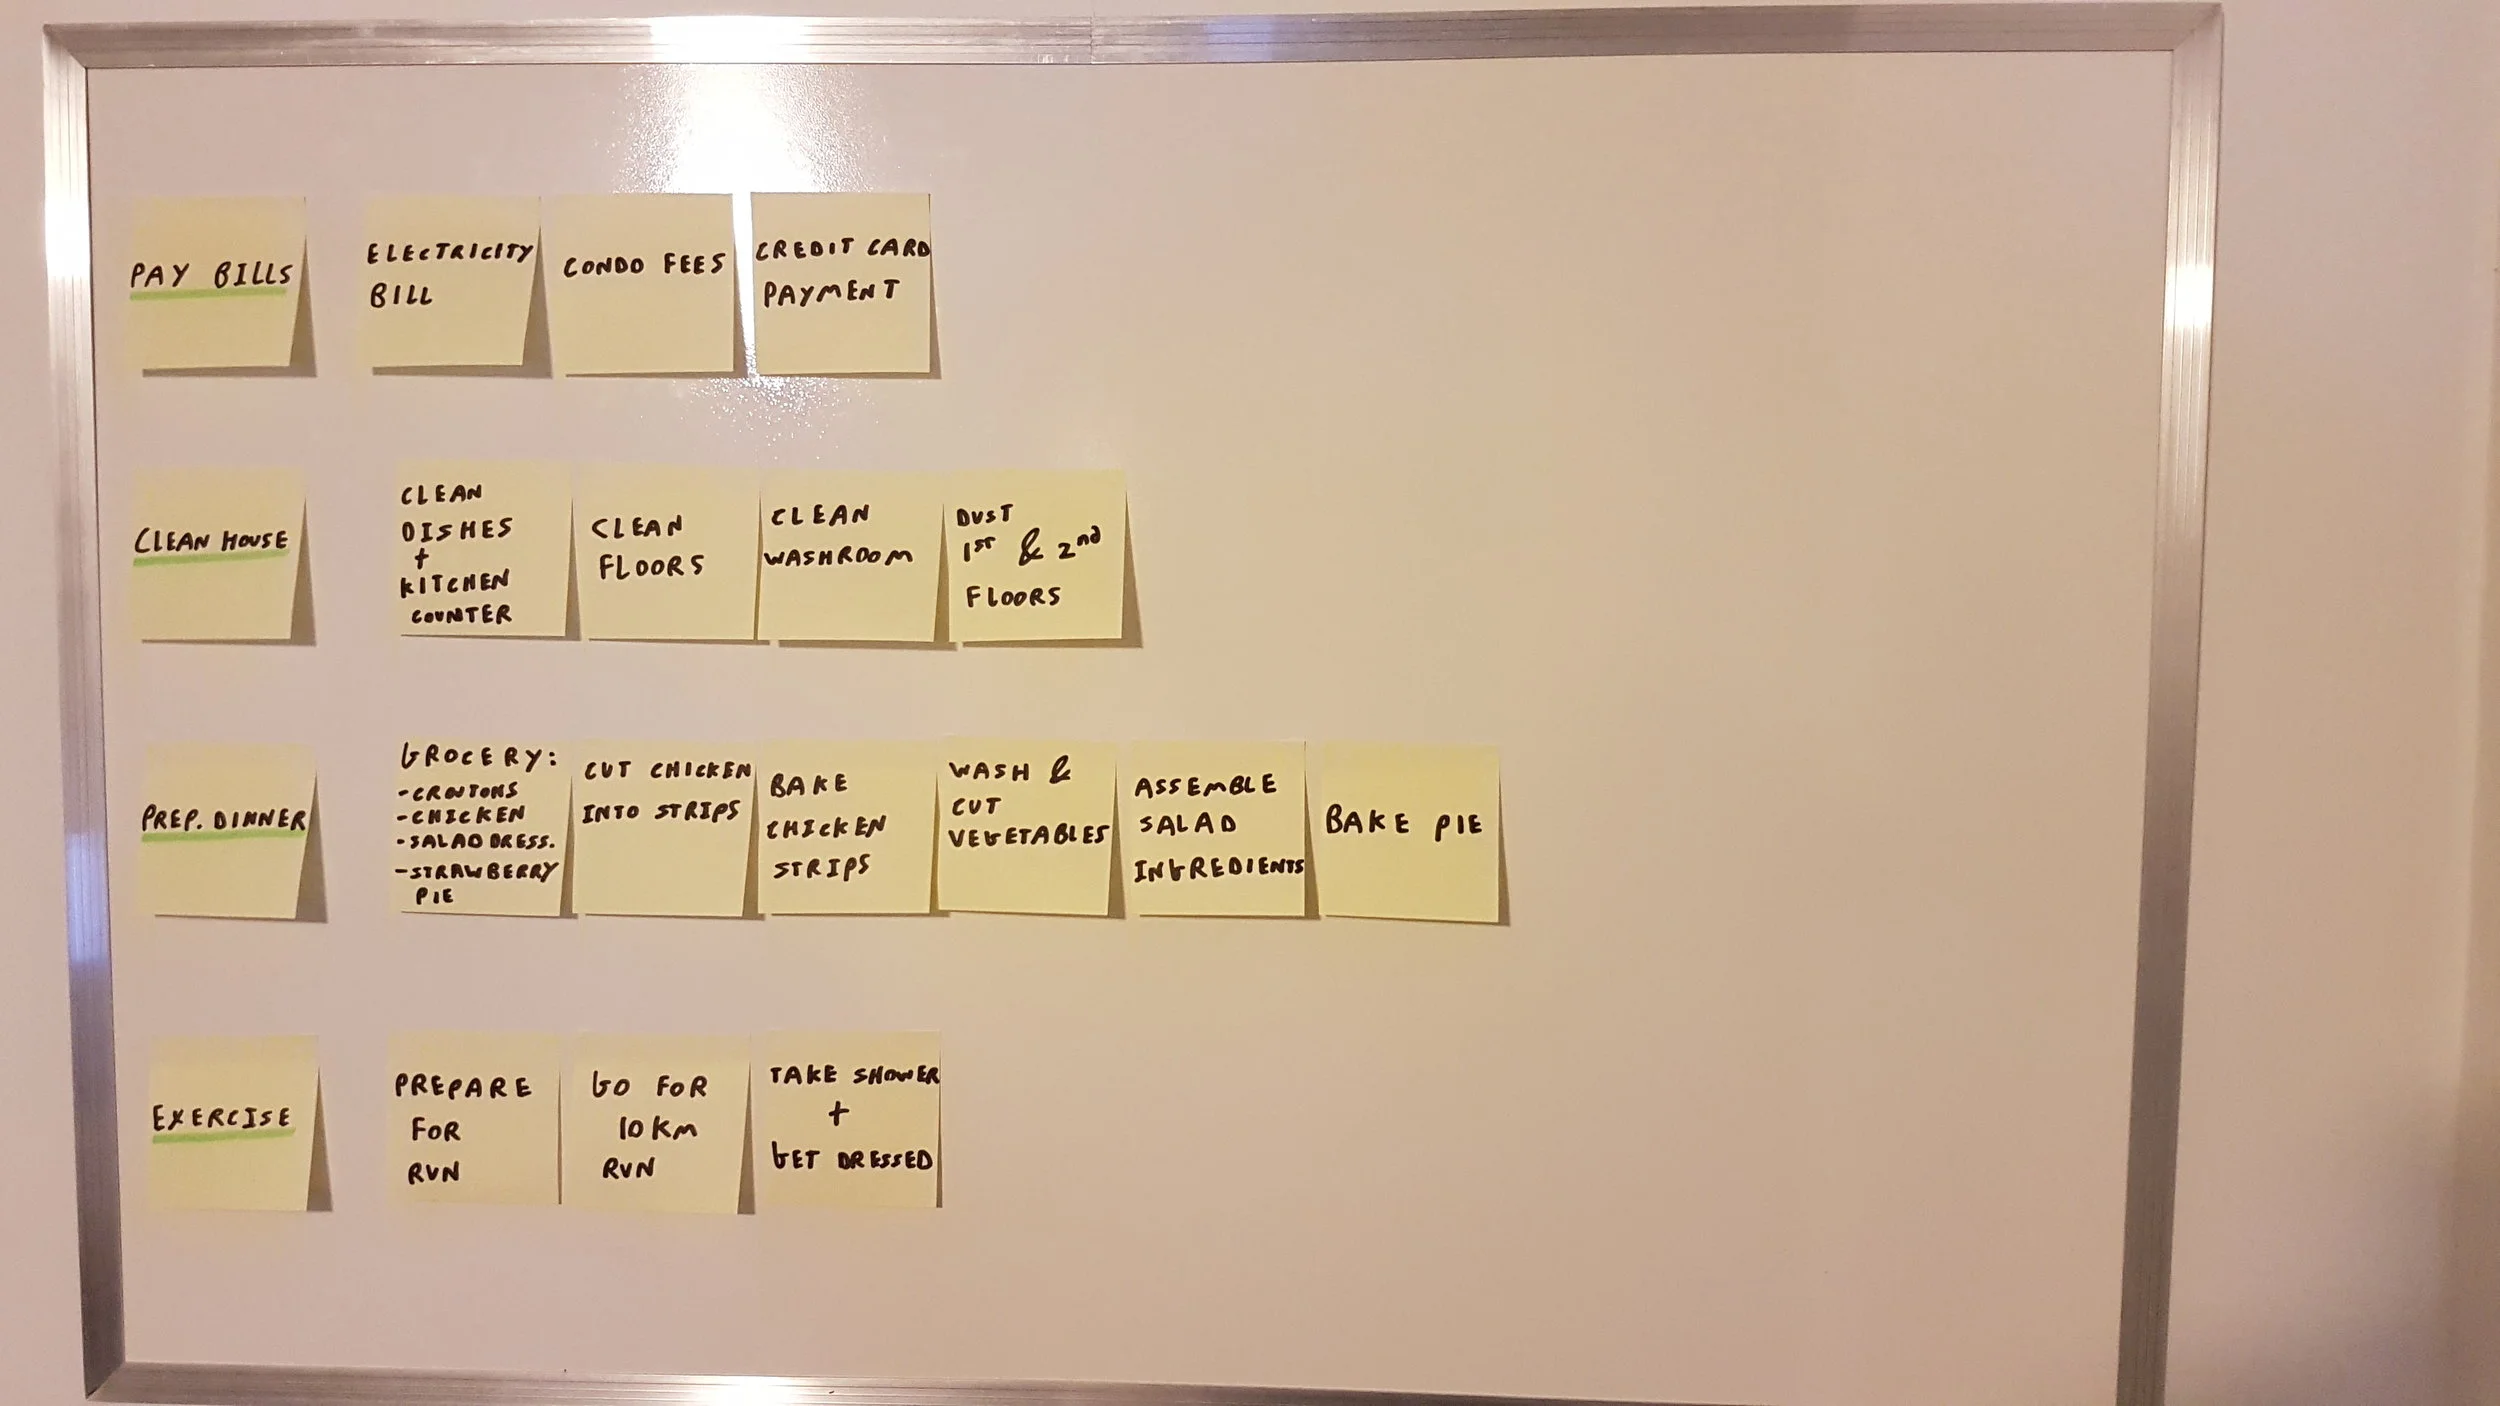 PAY BILLS
ELECTRICITY
BILL
CONDO FEES
CREDIT CARD
PAYMENT
CLEAN HOUSE
CLEAN
DISHES
+
KITCHEN
COUNTER
CLEAN
FLOORS
CLEAN
WASHROOM
DUST
1ST & 2nd
FLOORS
PREP. DINNER
GROCERY:
-CROUTONS
-CHICKEN
-SALAD DRESS.
-STRAWBERRY
PIE
CUT CHICKEN
INTO STRIPS
BAKE
CHICKEN
STRIPS
WASH &
CUT
VEGETABLES
ASSEMBLE
SALAD
INGREDIENTS
BAKE PIE
EXERCISE
PREPARE
FOR
RUN
GO FOR
10 KM
RUN
TAKE SHOWER
+
GET DRESSED